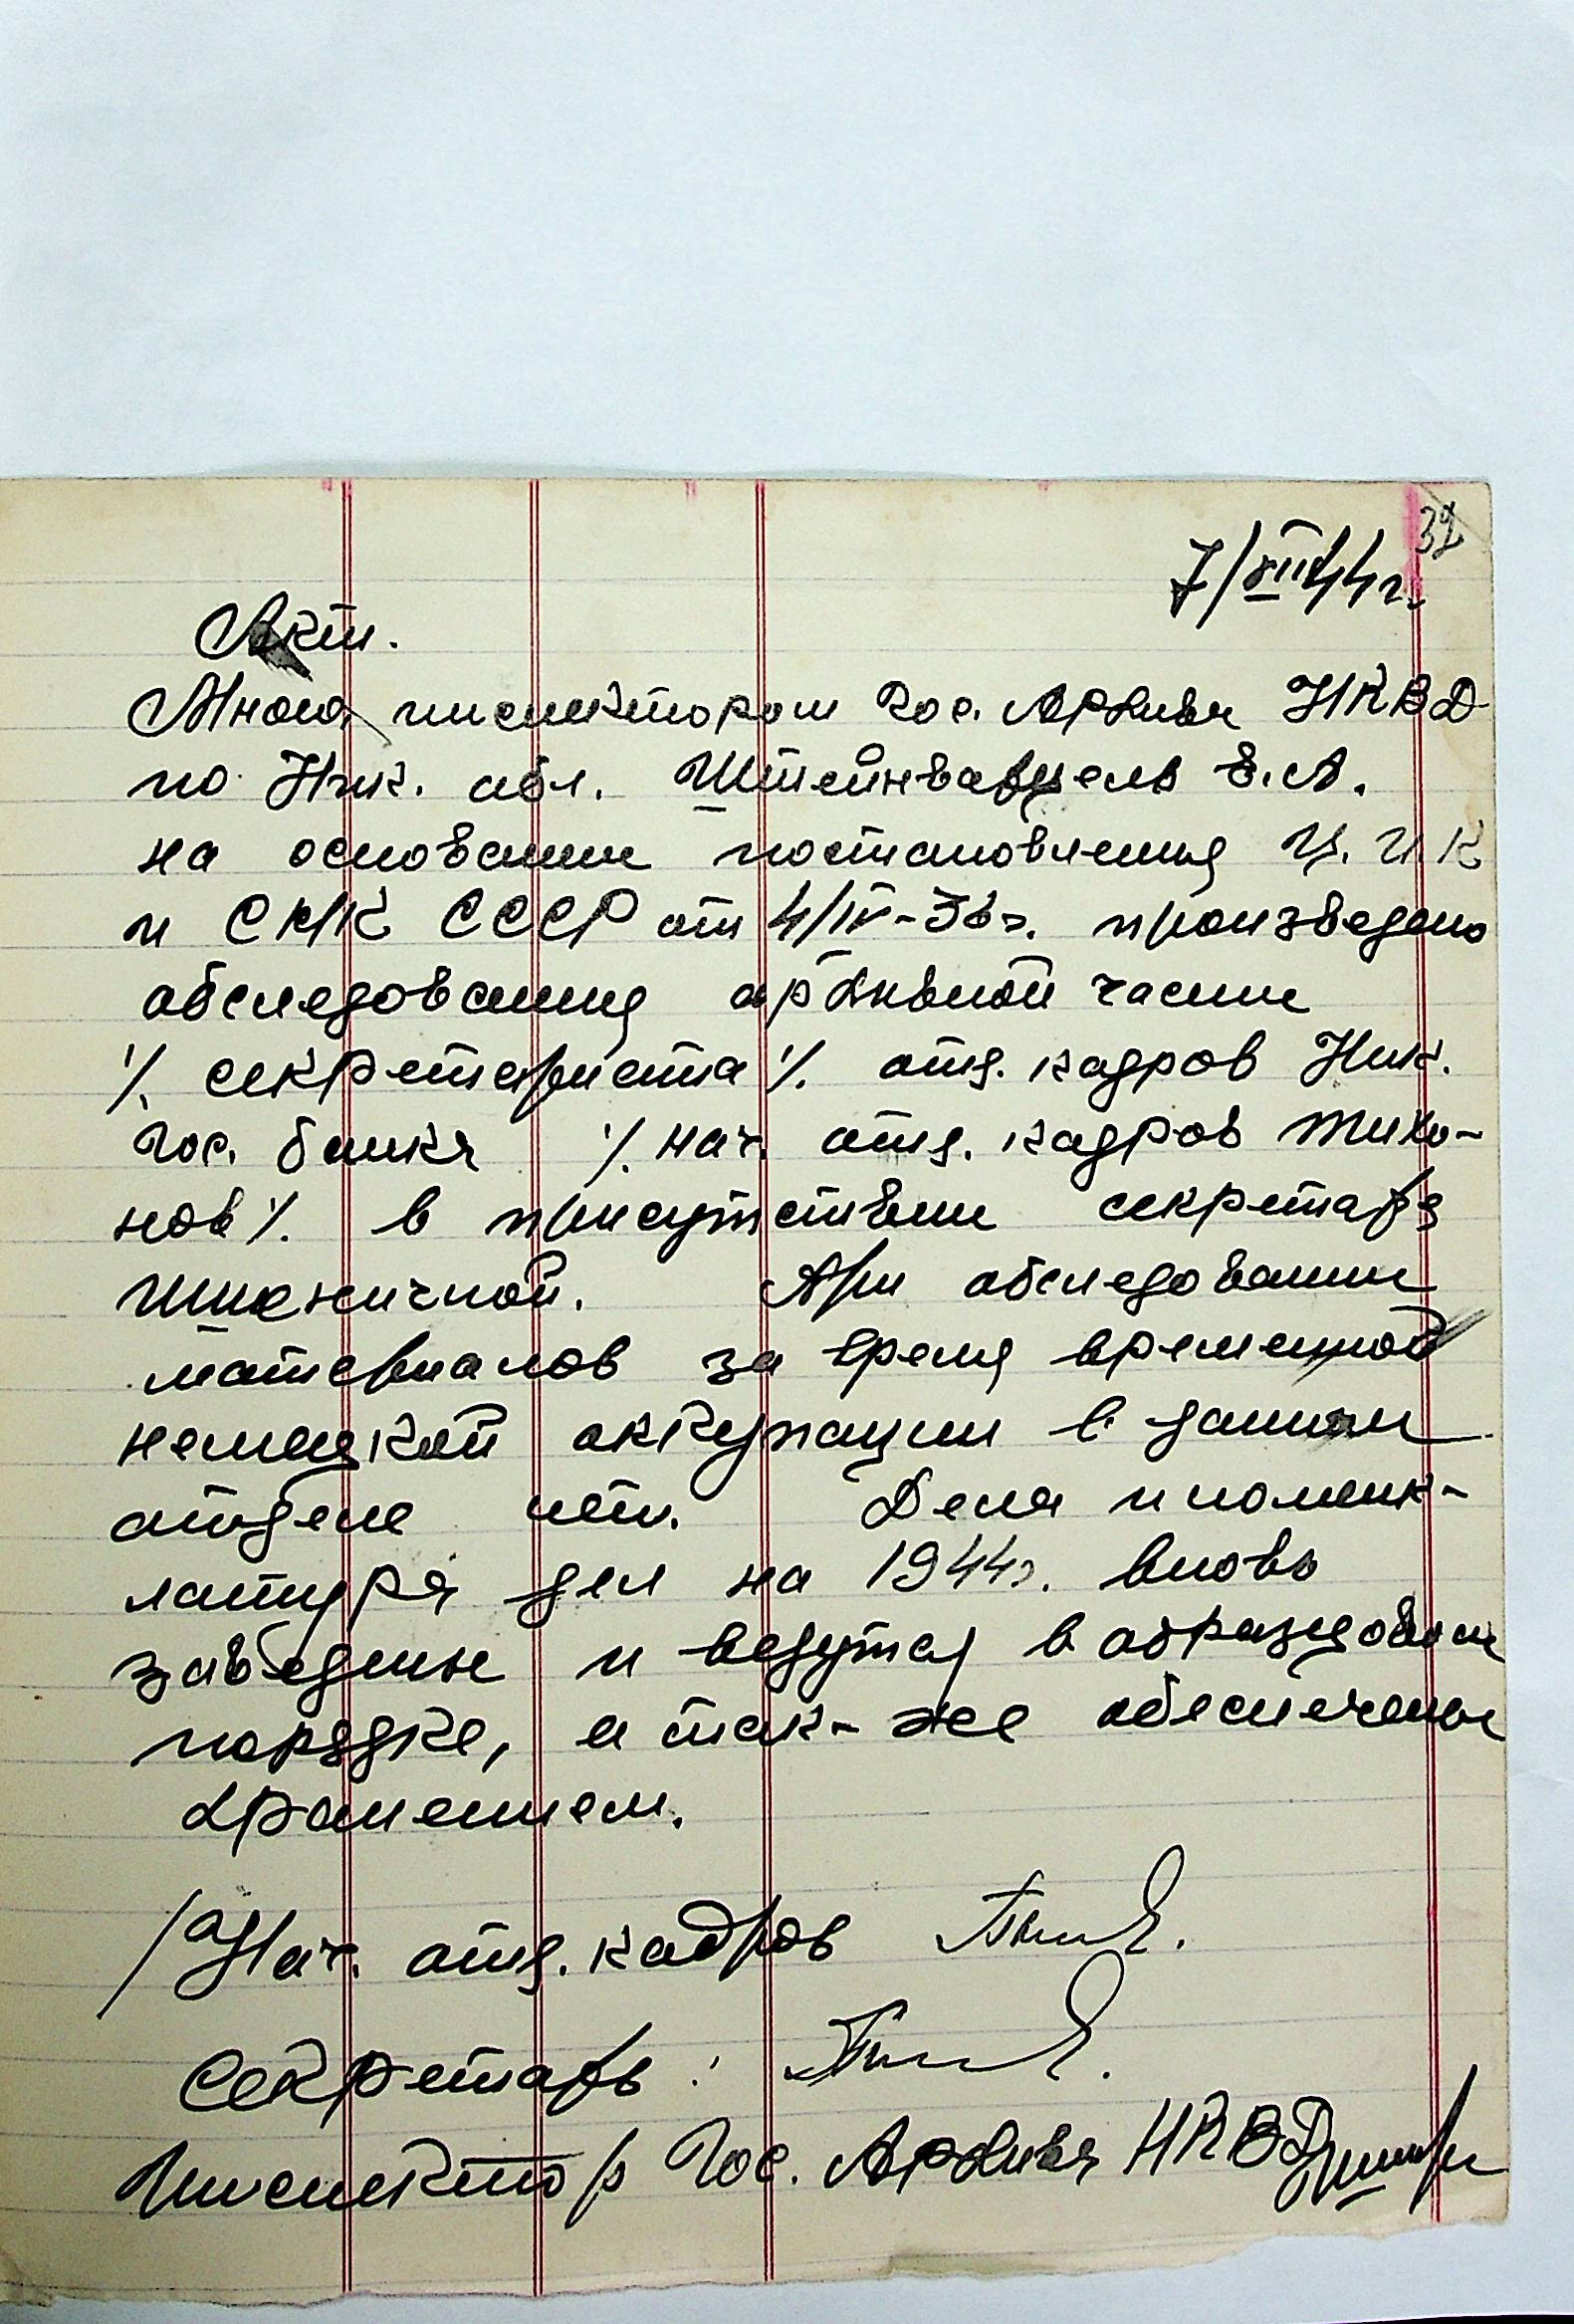 32
7/XII 44 г.
Акт.
Мною, инспектором Гос. Архива НКВД
по Ник. обл. E.А.
на основании постановления Ц.И.К
и СНК СССР от 4/IV-36 г. произведено
обследования архивной части
% секретариата % отд. кадров Ник.
Гос. банка % нач. отд. кадров Тихо-
нов % в присутствии секретаря
При обследовании
материалов за время временной
немецкой оккупации в данном
отделе нет. Дела и номенк-
латура дел на 1944 г. вновь
заведены и ведутся в образцовом
порядке, а так-же обеспечены
хранением.
Нач. отд. кадров
Секретарь:
Инспектор Гос. Архива НКВД